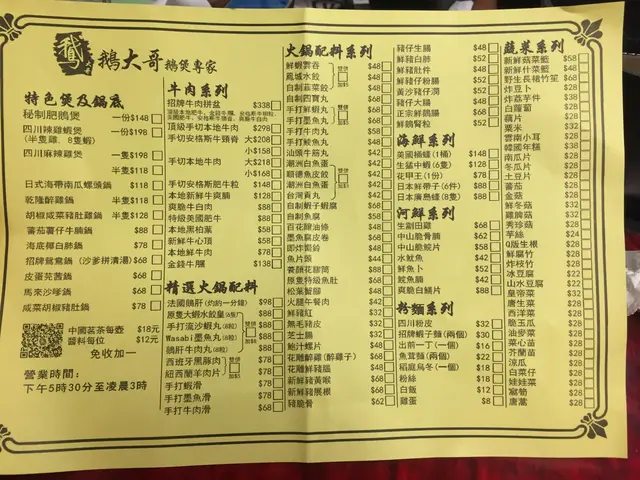 鵝大哥鵝煲專家
特色煲及鍋底
秘制肥鵝煲 一份$148
四川辣雞煲 一份$198
(半隻雞、8隻蝦)
四川麻辣雞煲 一隻$198
半隻$118
日式海帶南瓜螺頭鍋 $118
乾隆醉雞鍋 半隻$118
胡椒咸菜豬肚雞鍋 半隻$128
蕃茄薯仔牛腩鍋 $88
海底椰白肺鍋 $68
招牌鴛鴦鍋 (沙爹拼清湯) $68
皮蛋芫茜鍋 $68
馬來沙嗲鍋 $68
咸菜胡椒豬肚鍋 $78
中國茗茶每壺 $18元
醬料每位 $12元
免收加一
營業時間:
下午5時30分至凌晨3時
牛肉系列
招牌牛肉拼盆 $338
頂級手切本地牛肉 $298
手切安格斯牛頸脊 大$208
小$158
手切本地牛肉 大$218
小$168
手切安格斯肥牛 $148
本地新鮮牛爽腩 $128
爽脆牛白肉 $88
特級美國肥牛 $88
本地黑柏葉 $58
新鮮牛心頂 $58
本地鮮牛肉 $78
金錢牛𦟌 $138
精選火鍋配料
法國鵝肝 (約約一分鐘) $98
原隻大蝦水餃皇 (6隻) $88
手打流沙蝦丸 (8粒) $88
Wasabi墨魚丸 (8粒) $88
鵝肝牛肉丸 (8粒) $88
西班牙黑豚肉 $78
紐西蘭羊肉片 $78
手打蝦滑 $78
手打墨魚滑 $78
手打牛肉滑 $68
火鍋配料系列
鮮蝦雲吞 $48
鳳城水餃 $48
自制韮菜餃 $48
自制四寶丸 $68
手打鮮蝦丸 $68
手打墨魚丸 $58
手打牛肉丸 $58
手打鯪魚丸 $48
汕頭牛筋丸 $42
潮州白魚蛋 $42
順德魚皮餃 $42
潮洲白魚蛋 $42
台灣貢丸 $42
自制蝦子蝦腐 $68
自制魚腐 $58
百花釀油條 $48
墨魚竊皮卷 $68
即炸鱟鈴 $48
魚片頭 $44
養顏花膠筒 $88
原隻特級魚肚 $68
松葉蟹腳 $48
火腿午餐肉 $42
鮮豬紅 $32
無毛豬皮 $32
芝士腸 $32
鮑汁螺片 $48
花雕醉雞 (醉雞子) $68
花雕鮮豬膶 $48
新鮮豬黃喉 $68
新鮮豬展根 $68
豬脆骨 $62
豬仔生腸 $48
新鮮白肺 $52
新鮮肚件 $48
豬仔粉腸 $52
黃沙豬仔潤 $52
豬仔大腸 $48
正宗鮮鵝腸 $68
鮮鵝腎粒 $52
海鮮系列
美國桶蠔 (1桶) $148
生猛中蝦 (6隻) $128
花甲王 (1份) $78
日本鮮帶子 (6件) $88
日本廣島蠔 (8隻) $88
河鮮系列
生劏田雞 $68
中山脆骨腩 $62
中山脆鯇片 $58
水魷魚 $42
鮮魚卜 $52
鯇魚腩 $42
爽脆白鱔片 $88
粉麵系列
四川粉皮 $32
招牌蝦子麵 (兩個) $30
出前一丁 (一個) $16
魚茸麵 (兩個) $22
稻庭烏冬 (一個) $18
粉絲 $18
白飯 $12
雞蛋 $8
蔬菜系列
新鮮菇菜籃 $58
新鮮什菜籃 $48
野生長裙竹笙 $68
炸豆卜 $28
炸荔芋件 $38
白蘿蔔 $28
藕片 $28
粟米 $32
雲南小耳 $28
韓國年糕 $38
南瓜片 $28
冬瓜片 $28
土豆片 $28
蕃茄 $28
金菇 $28
鮮冬菇 $32
雞髀菇 $32
秀珍菇 $28
芋絲 $24
Q版生根 $28
鮮豆腐 $22
炸枝竹 $28
冰豆腐 $22
山水豆腐 $22
皇帝菜 $32
唐生菜 $28
西洋菜 $28
脆玉瓜 $28
油麥菜 $28
菜心苗 $28
芥蘭苗 $28
涼瓜 $28
白菜仔 $28
娃娃菜 $28
窩筍 $28
唐蒿 $28